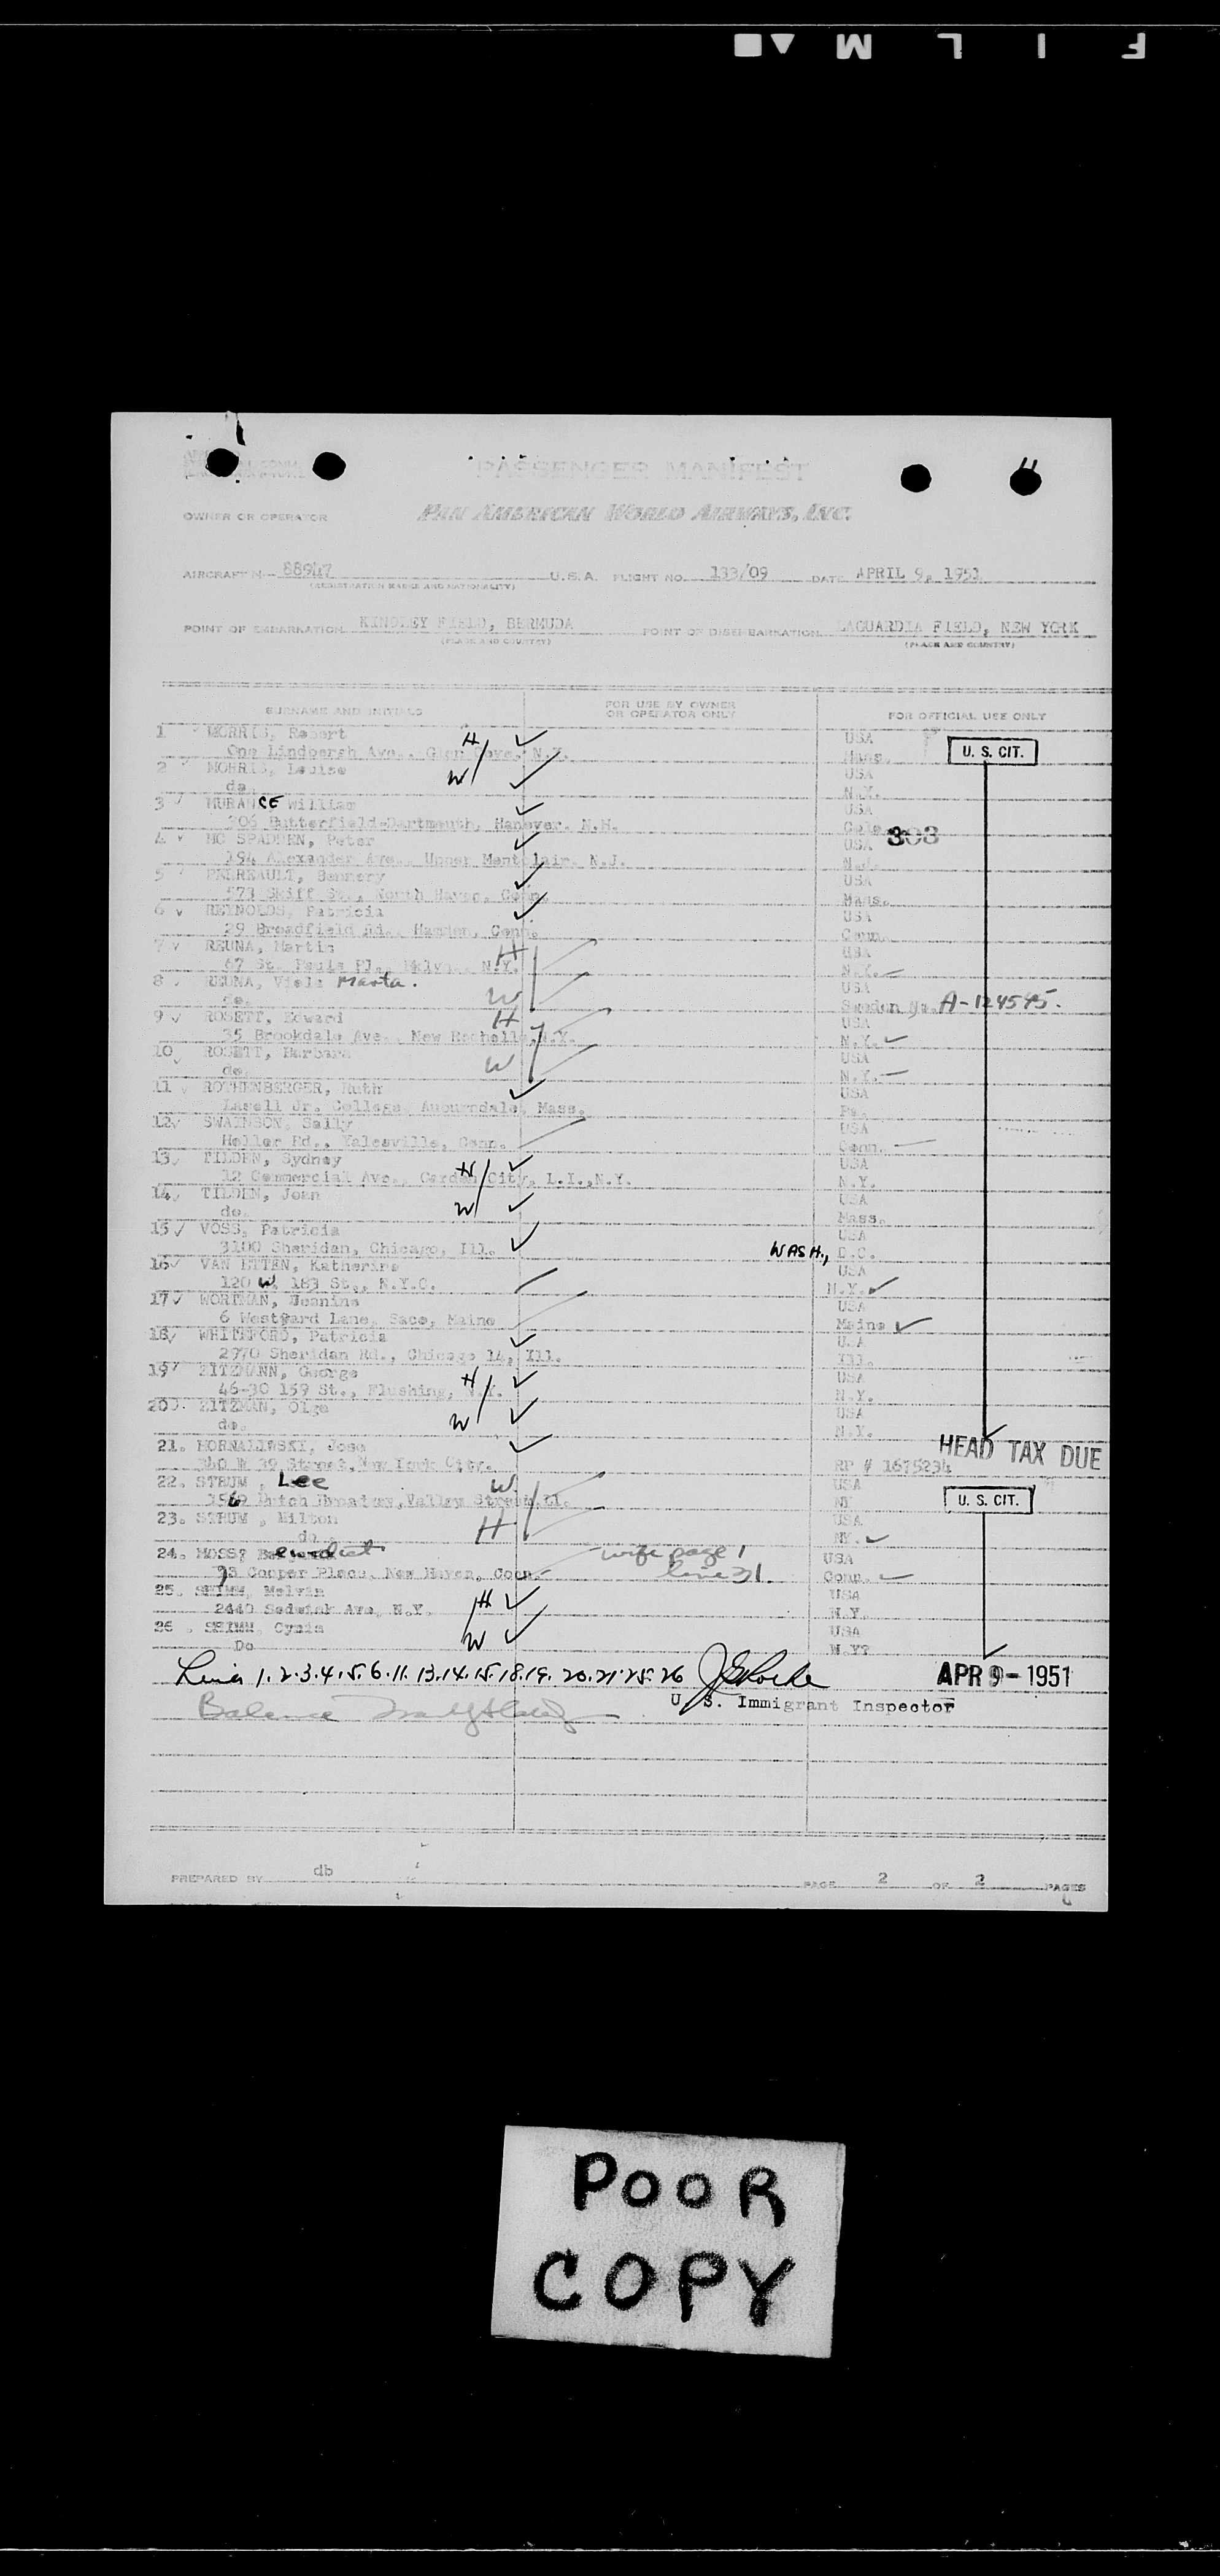 F I L M
PASSENGER MANIFEST
OWNER OR OPERATOR PAN AMERICAN WORLD AIRWAYS, INC.
AIRCRAFT N- 88947 U.S.A. FLIGHT NO. 133/09 DATE APRIL 9, 1951
(REGISTRATION MARKS AND NATIONALITY)
POINT OF EMBARKATION KINDLEY FIELD, BERMUDA POINT OF DISEMBARKATION LAGUARDIA FIELD, NEW YORK
(PLACE AND COUNTRY) (PLACE AND COUNTRY)
SURNAME AND INITIALS FOR USE BY OWNER OR OPERATOR ONLY FOR OFFICIAL USE ONLY
1 ✓ MORRIS, Robert H ✓ USA
One Lindbergh Ave., Glen Cove, N.Y. Mass. U. S. CIT.
2 ✓ MORRIS, Louise W ✓ USA
do. N.Y.
3 ✓ MURANCE William ✓ USA
306 Butterfield-Dartmouth, Hanover, N.H. Colo. 303
4 ✓ MC SPADDEN, Peter ✓ USA
194 Alexander Ave., Upper Montclair, N.J.
5 ✓ PERREAULT, ✓ USA
573 Skiff St., North Haven, Conn. Mass.
6 ✓ REYNOLDS, Patricia ✓ USA
29 Broadfield Rd., Hamden, Conn. Conn.
7 ✓ REUNA, Martin H USA
67 St. Pauls Pl., Bklyn., N.Y. N.Y.
8 ✓ REUNA, Marta. W USA
do. Sweden A-124545.
9 ✓ ROSETT, Edward H USA
35 Brookdale Ave., New Rochelle, N.Y. N.Y. ✓
10 ✓ ROSETT, Barbara W USA
do. N.Y.
11 ROTHENBERGER, Ruth ✓ USA
Lasell Jr. College, Auburndale, Mass. Pa.
12 ✓ SWAINSON, Sally USA
Heller Rd., Yalesville, Conn. Conn.
13 ✓ TILDEN, Sydney H ✓ USA
12 Commercial Ave., Garden City, L.I.,N.Y. N.Y.
14 ✓ TILDEN, Joan W ✓ USA
do. Mass.
15 ✓ VOSS, Patricia ✓ USA
3100 Sheridan, Chicago, Ill. WASH., D.C.
16 ✓ VAN ETTEN, Katherine USA
120 W. 183 St., N.Y.C. N.Y. ✓
17 ✓ WORTMAN, Jeanine USA
6 Westyard Lane, Saco, Maine Maine ✓
18 ✓ WHITEFORD, Patricia ✓ USA
2970 Sheridan Rd., Chicago 14, Ill. Ill.
19 ✓ ZITZMANN, George H ✓ USA
46-30 159 St., Flushing, N.Y. N.Y.
20 ZITZMAN, Olga W ✓ USA
do. N.Y.
21. HORNALEWSKI, Jose ✓ HEAD TAX DUE
340 W 39 Street, New York City. RP # 1675234
22. STRUM, Lee W USA
Dutch Broadway, Valley Stream, NY U. S. CIT.
23. STRUM, Milton H USA
do. NY. ✓
24. MOSS, wife page 1 USA
93 Cooper Place, New Haven, Conn. line 31. Conn. ✓
25. SHIMM, Melvin H ✓ USA
2440 Sedwick Ave, N.Y. N.Y.
26. SHIMM, Cynia W ✓ USA
Do N.Y?
Lines 1.2.3.4.5.6.11.13.14.15.18.19.20.21.25.26 APR 9 - 1951
U. S. Immigrant Inspector
Balance
PREPARED BY db PAGE 2 OF 2 PAGES
POOR
COPY